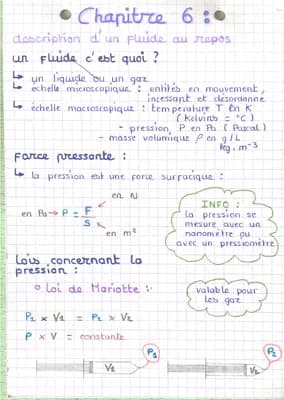 Chapitre 6 :
description d'un fluide au repos
un fluide c'est quoi ?
↳ un liquide ou un gaz
↳ echelle microscopique : entités en mouvement,
incessant et desordonne
↳ échelle macroscopique : temperature T en K
(Kelvins = °C)
- pression P en Pa (Pascal)
- masse volumique ρ en g/L
kg.m⁻³
Force pressante :
↳ la pression est une force surfacique :
en N
en Pa → P = F/S
en m²
INFO :
la pression se
mesure avec un
nanomètre ou
avec un pressiomètre
Lois concernant la
pression :
o Loi de Mariotte :
valable pour
les gaz
P₁ × V₁ = P₂ × V₂
P × V = constante
P₁
V₁
P₂
V₂